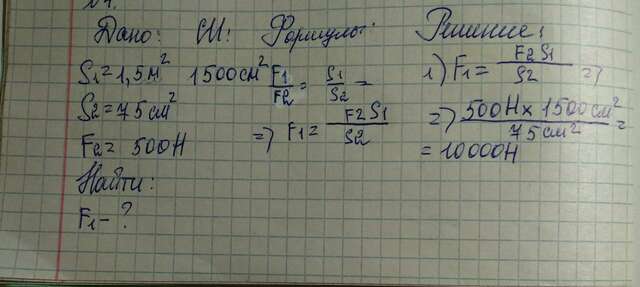 №1.
Дано: СИ: Формулы: Решение:
S1=1,5м² 1500см² F1/F2 = S1/S2 => 1) F1= F2S1/S2 =>
S2=75см²
F2= 500Н => F1= F2S1/S2 => 500Н x 1500см²/75см² =
= 10000Н
Найти:
F1 - ?